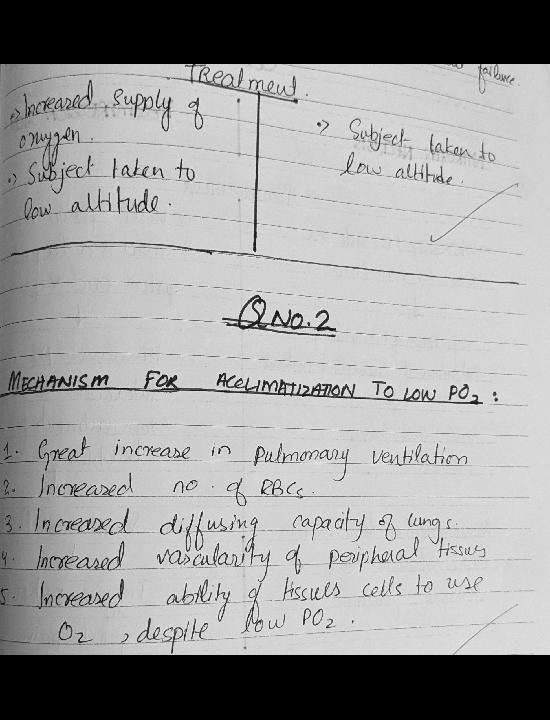 failure.
Treatment.
•> Increased supply of
oxygen.
•> Subject taken to
low altitude.
•> Subject taken to
low altitude.
Q No. 2
MECHANISM FOR ACCLIMATIZATION TO LOW PO2 :
1. Great increase in pulmonary ventilation
2. Increased no. of RBCs.
3. Increased diffusing capacity of lungs.
4. Increased vascularity of peripheral tissues
5. Increased ability of tissues cells to use
O2 , despite low PO2.